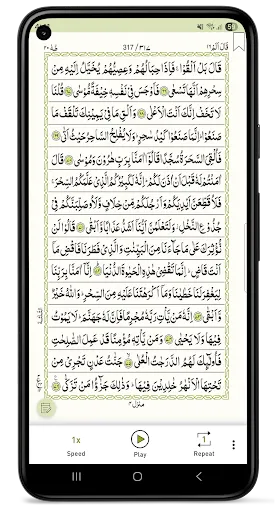 قَالَ اَلَمْ ١٦ 317 / ٣١٧ طٰهٰ ٢٠
قَالَ بَلْ اَلْقُوْا ۚ فَاِذَا حِبَالُهُمْ وَعِصِيُّهُمْ يُخَيَّلُ اِلَيْهِ مِنْ
سِحْرِهِمْ اَنَّهَا تَسْعٰى ۝ فَاَوْجَسَ فِيْ نَفْسِهٖ خِيْفَةً مُّوْسٰى ۝ قُلْنَا
لَا تَخَفْ اِنَّكَ اَنْتَ الْاَعْلٰى ۝ وَاَلْقِ مَا فِيْ يَمِيْنِكَ تَلْقَفْ مَا
صَنَعُوْا ؕ اِنَّمَا صَنَعُوْا كَيْدُ سٰحِرٍ ؕ وَلَا يُفْلِحُ السَّاحِرُ حَيْثُ اَتٰى ۝
فَاُلْقِيَ السَّحَرَةُ سُجَّدًا قَالُوْٓا اٰمَنَّا بِرَبِّ هٰرُوْنَ وَمُوْسٰى ۝ قَالَ
اٰمَنْتُمْ لَهٗ قَبْلَ اَنْ اٰذَنَ لَكُمْ ؕ اِنَّهٗ لَكَبِيْرُكُمُ الَّذِيْ عَلَّمَكُمُ السِّحْرَ ۚ
فَلَاُقَطِّعَنَّ اَيْدِيَكُمْ وَاَرْجُلَكُمْ مِّنْ خِلَافٍ وَّلَاُوصَلِّبَنَّكُمْ فِيْ
جُذُوْعِ النَّخْلِ ؗ وَلَتَعْلَمُنَّ اَيُّنَآ اَشَدُّ عَذَابًا وَّاَبْقٰى ۝ قَالُوْا لَنْ
نُّؤْثِرَكَ عَلٰى مَا جَآءَنَا مِنَ الْبَيِّنٰتِ وَالَّذِيْ فَطَرَنَا فَاقْضِ مَآ
اَنْتَ قَاضٍ ؕ اِنَّمَا تَقْضِيْ هٰذِهِ الْحَيٰوةَ الدُّنْيَا ۝ اِنَّآ اٰمَنَّا بِرَبِّنَا
لِيَغْفِرَ لَنَا خَطٰيٰنَا وَمَآ اَكْرَهْتَنَا عَلَيْهِ مِنَ السِّحْرِ ؕ وَاللّٰهُ خَيْرٌ
وَّاَبْقٰى ۝ اِنَّهٗ مَنْ يَّاْتِ رَبَّهٗ مُجْرِمًا فَاِنَّ لَهٗ جَهَنَّمَ ؕ لَا يَمُوْتُ
فِيْهَا وَلَا يَحْيٰى ۝ وَمَنْ يَّاْتِهٖ مُؤْمِنًا قَدْ عَمِلَ الصّٰلِحٰتِ
فَاُولٰٓئِكَ لَهُمُ الدَّرَجٰتُ الْعُلٰى ۝ جَنّٰتُ عَدْنٍ تَجْرِيْ مِنْ
تَحْتِهَا الْاَنْهٰرُ خٰلِدِيْنَ فِيْهَا ؕ وَذٰلِكَ جَزٰٓؤُا مَنْ تَزَكّٰى ۝
منزل ٤
1x
1
Speed Play Repeat